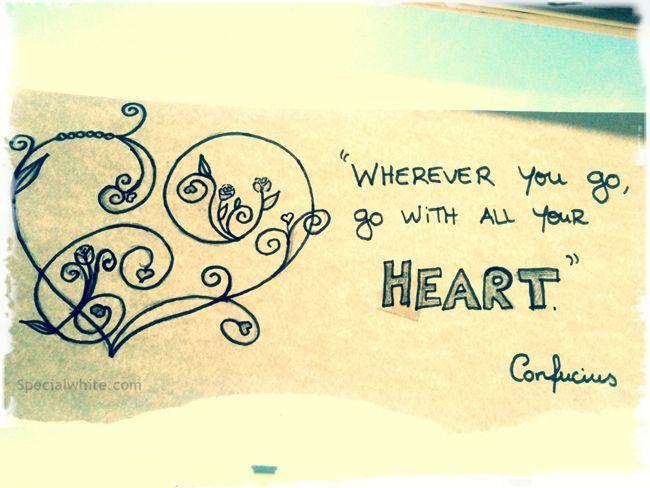 "WHEREVER YOU go,
go WITH ALL YOUR
HEART."
Confucius
Specialwhite.com